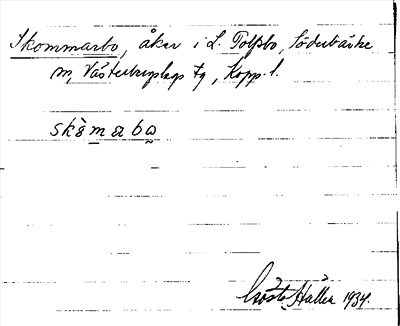 Skommarbo, åker i L. Tolfsbo, Söderbärke
sn, Västerbergslags tg, Kopp. l.
skåmabo
Gösta Hallen 1934.